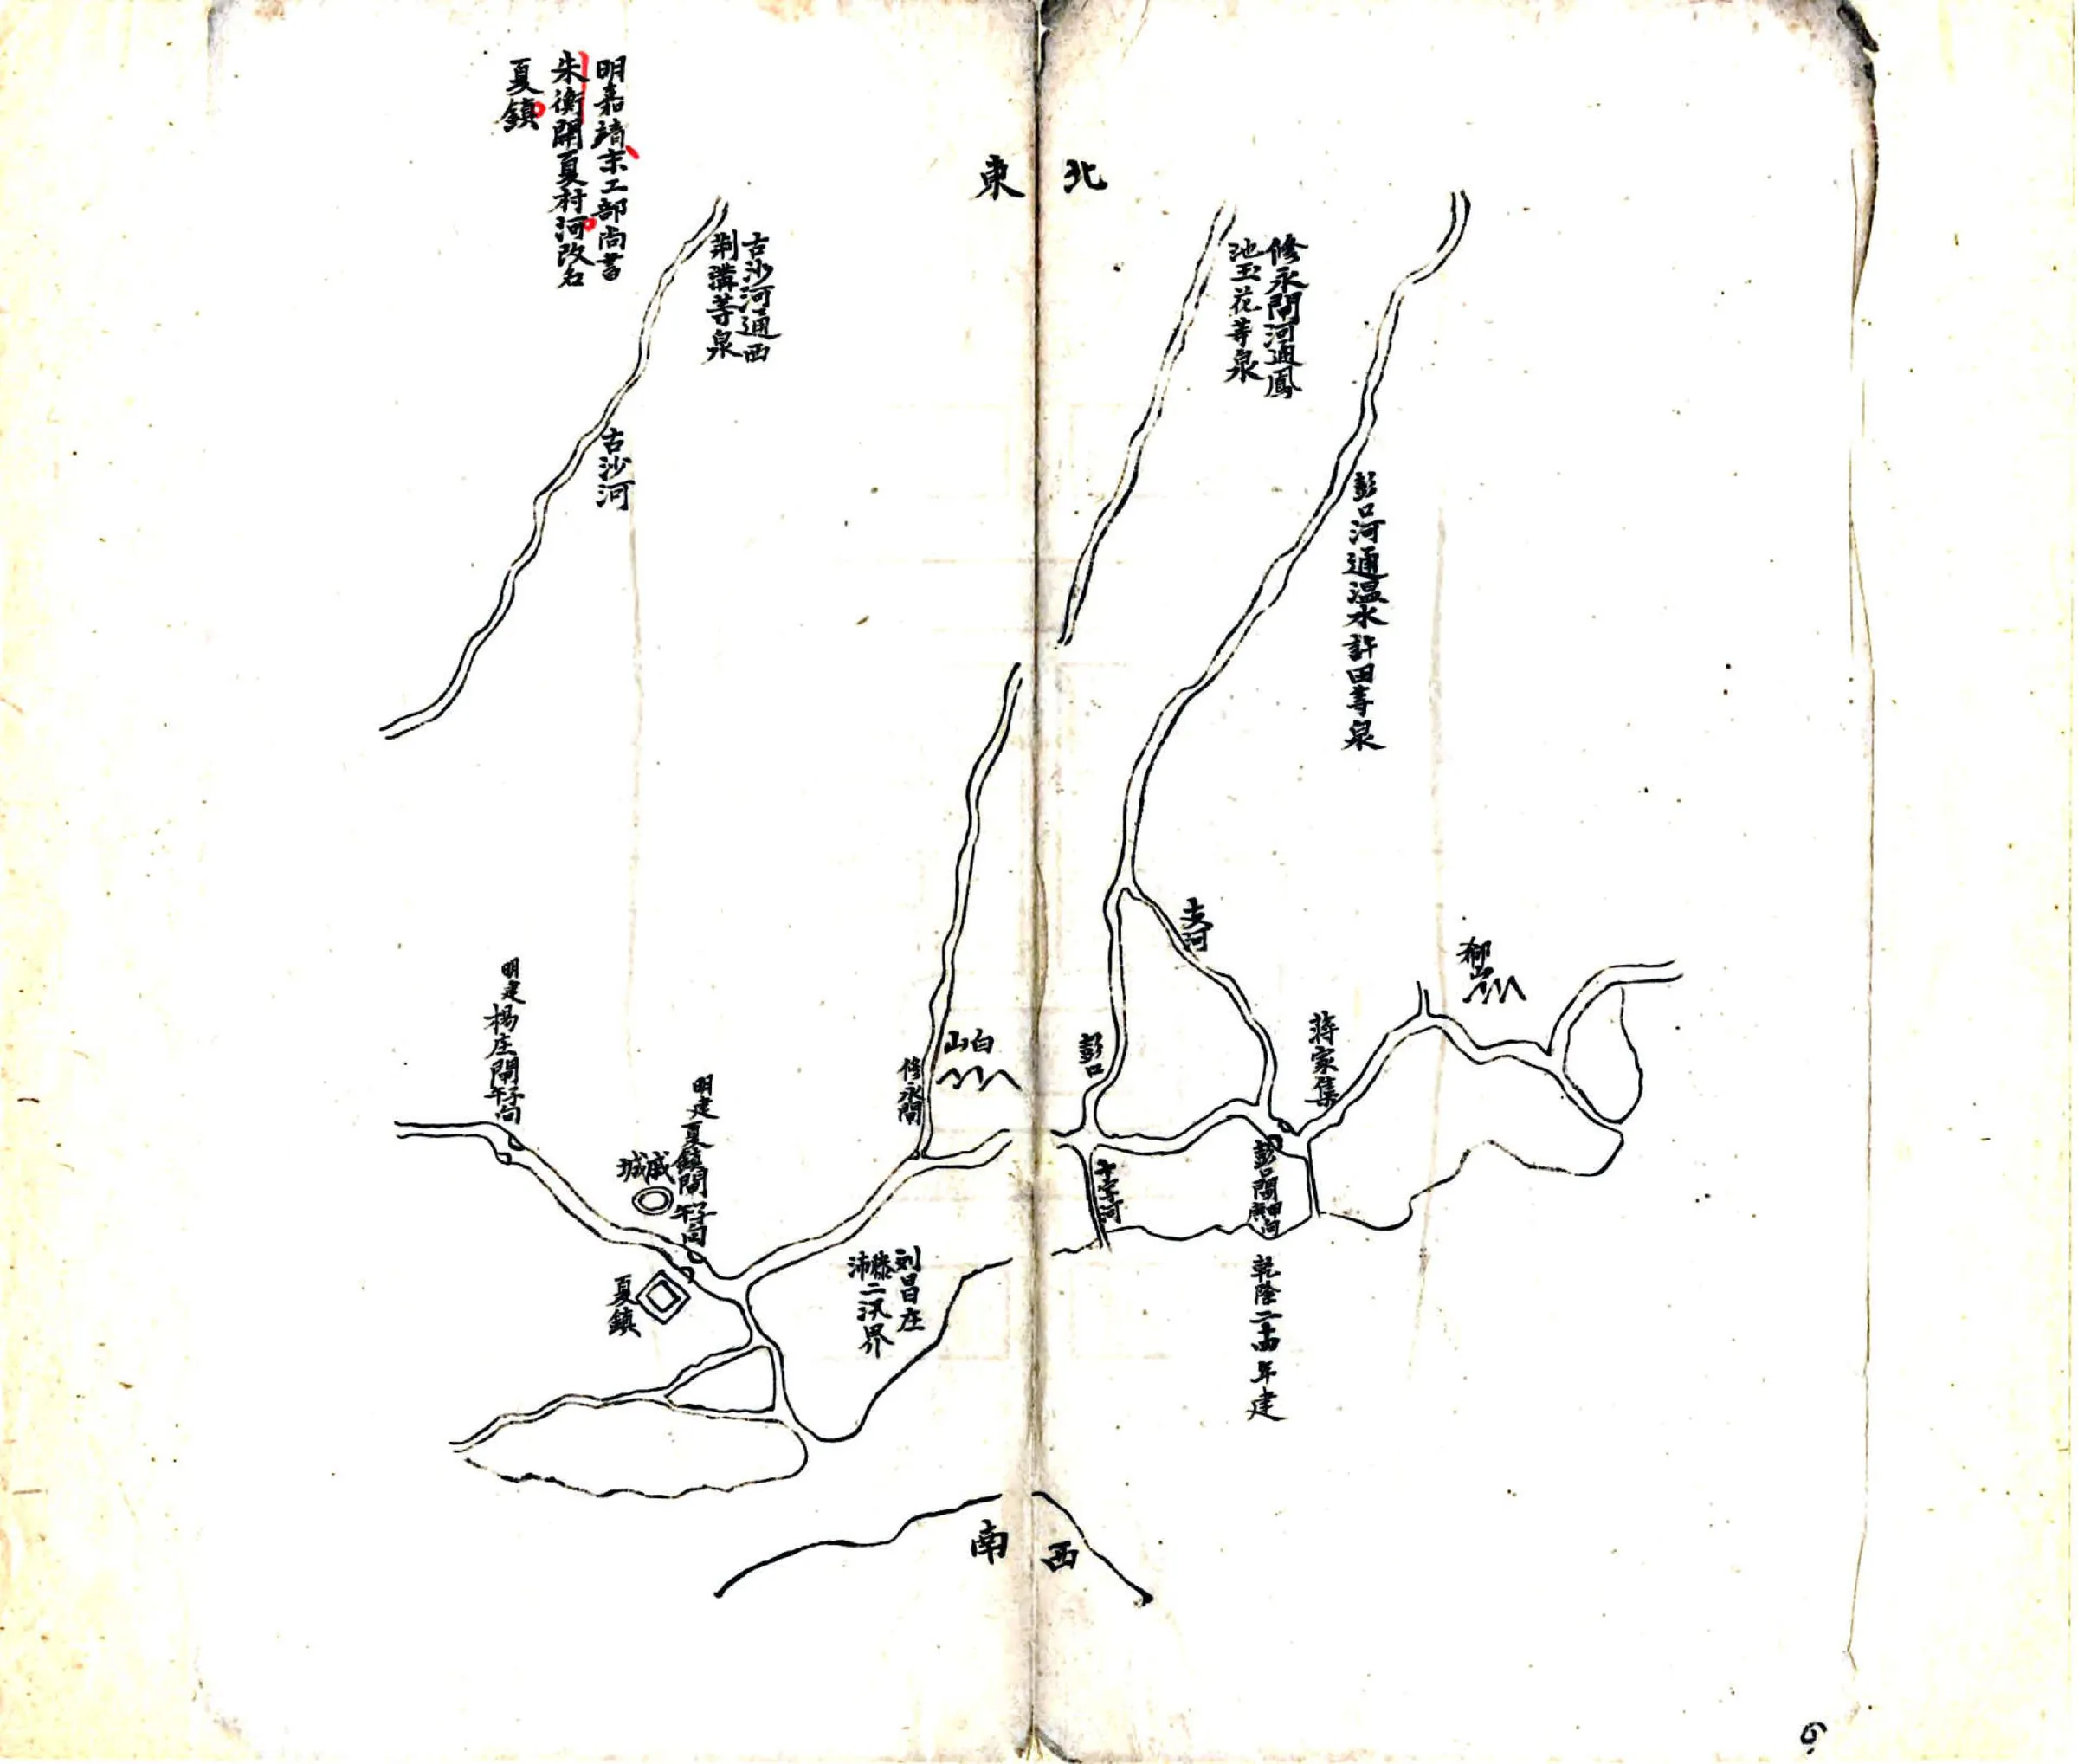 北
修永閘河通鳳
池玉花等泉
彭口河通温水許田等泉
支河
郗山
蔣家集
彭口
十字河
彭口閘
乾隆二十四年建
西
東
古沙河通西
荆溝等泉
古沙河
明嘉靖末工部尚書
朱衡開夏村河改名
夏鎮
白山
修永閘
明建夏鎮閘子午向
戚城
夏鎮
明建楊庄閘子午向
刘昌庄
滕沛二汛界
南